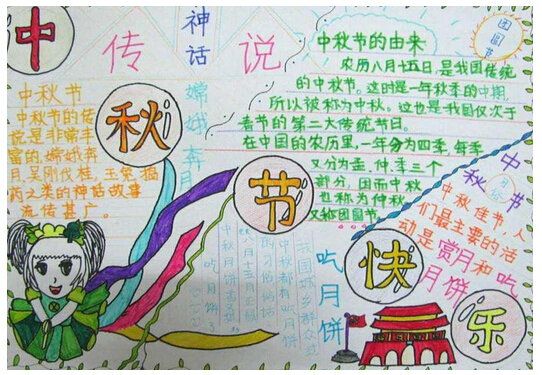 中秋节快乐
神话
传说
团圆节
中秋节
中秋节的传
说是非常丰
富的,嫦娥奔
月,吴刚伐桂,玉兔捣
药之类的神话故事
流传甚广。
嫦娥奔月
中秋节的由来
农历八月十五日,是我国传统
的中秋节。这时是一年秋季的中期,
所以被称为中秋。这也是我国仅次于
春节的第二大传统节日。
在中国的农历里,一年分为四季,每季
又分为孟、仲、季三个
部分,因而中秋
也称为仲秋
又称团圆节。
中秋节
中秋佳节,人
们最主要的活
动是赏月和吃
月饼
吃月饼
我国城乡群众过
中秋都有吃月饼
的习俗,俗话
吃月饼